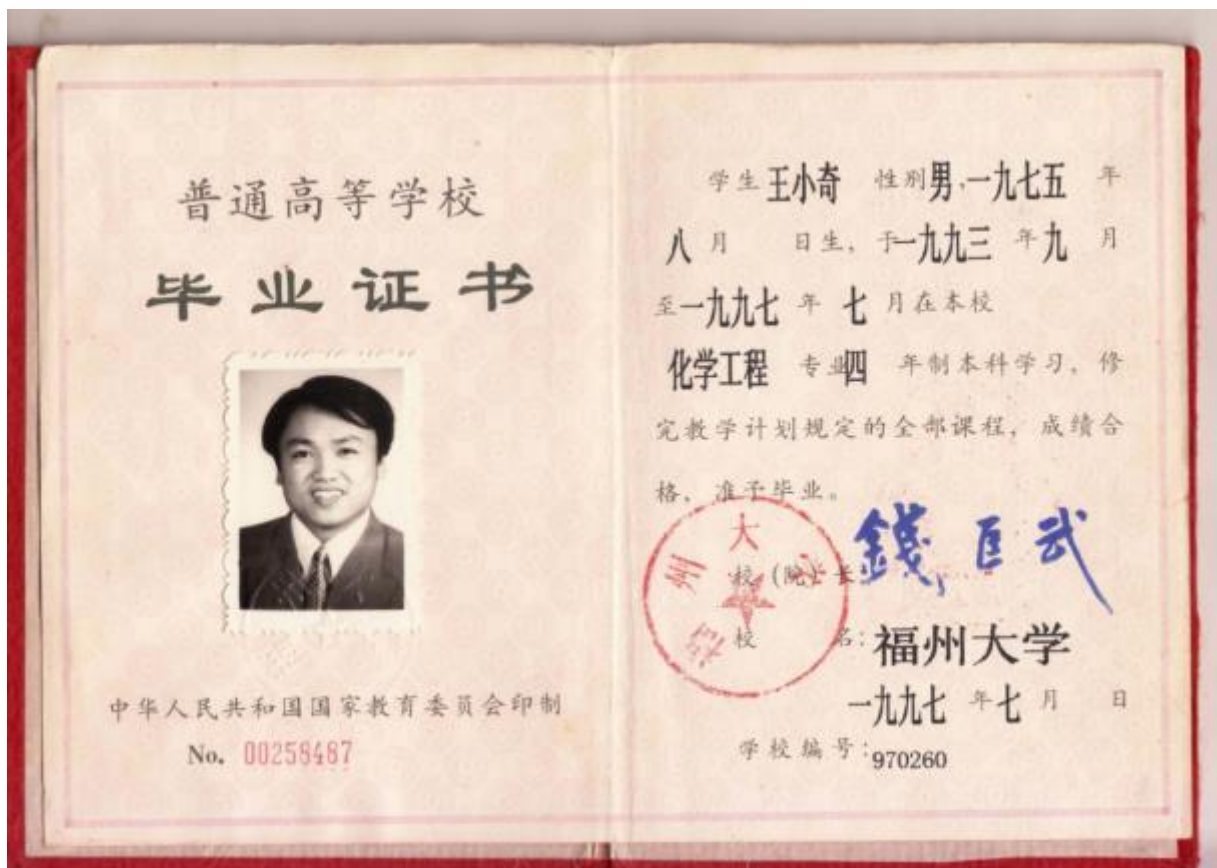 普通高等学校
毕业证书
中华人民共和国国家教育委员会印制
No. 00258487
学生王小奇 性别男,一九七五 年
八月 日生, 于一九九三 年九 月
至一九九七 年 七 月在本校
化学工程 专业四 年制本科学习, 修
完教学计划规定的全部课程, 成绩合
格, 准予毕业。
校(院)长: 錢匡武
校 名: 福州大学
一九九七 年七月 日
学校编号: 970260
福州大学